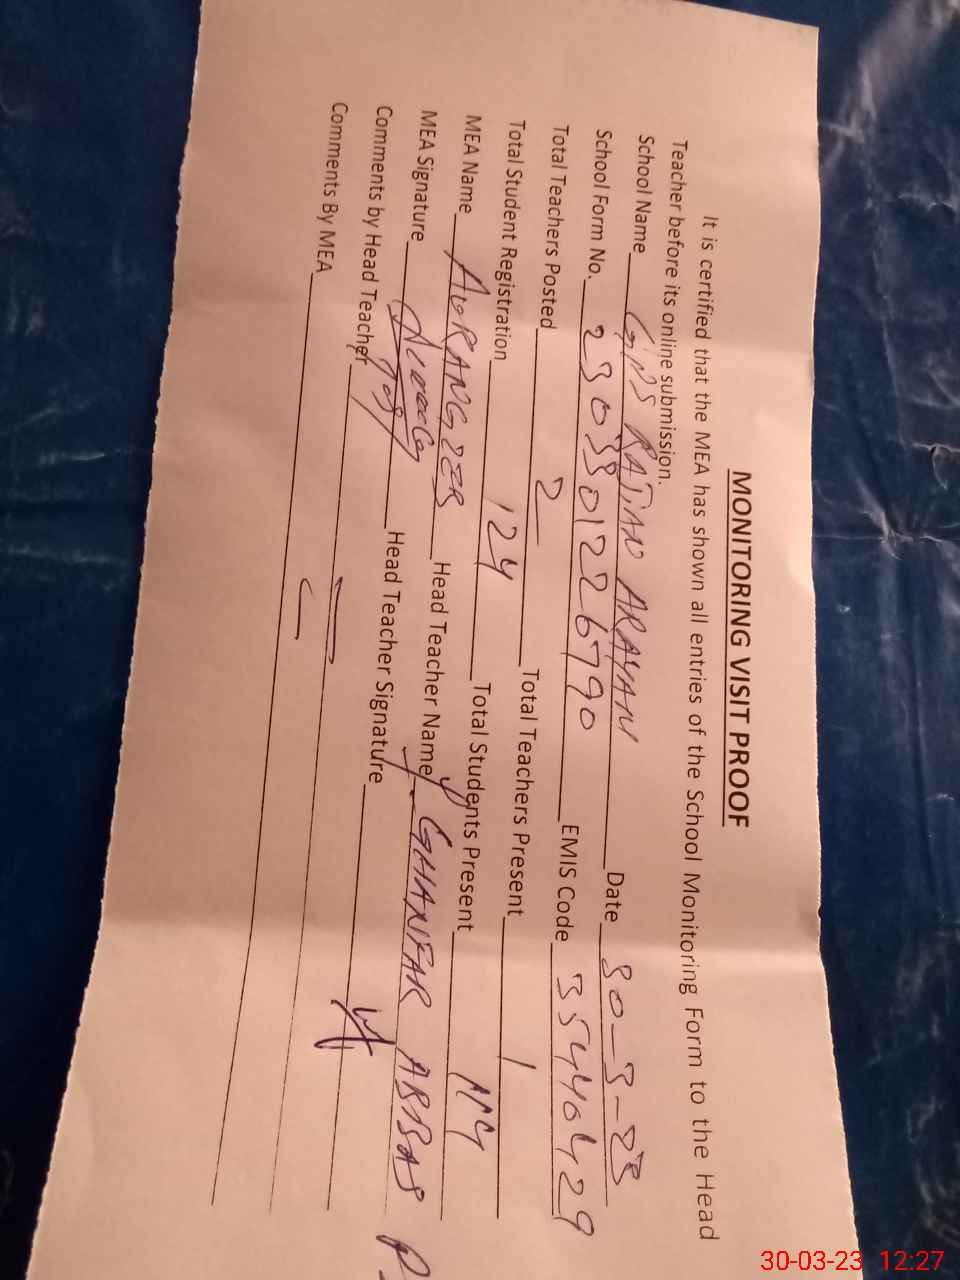 MONITORING VISIT PROOF
It is certified that the MEA has shown all entries of the School Monitoring Form to the Head
Teacher before its online submission.
School Name GPS RAJIAN ARAYAN Date 30-3-23
School Form No. 2303301226790 EMIS Code 35440429
Total Teachers Posted 2 Total Teachers Present 1
Total Student Registration 124 Total Students Present
MEA Name AURANGZEB Head Teacher Name GHANFAR ABBAS
MEA Signature Head Teacher Signature
Comments by Head Teacher
Comments By MEA
30-03-23 12:27